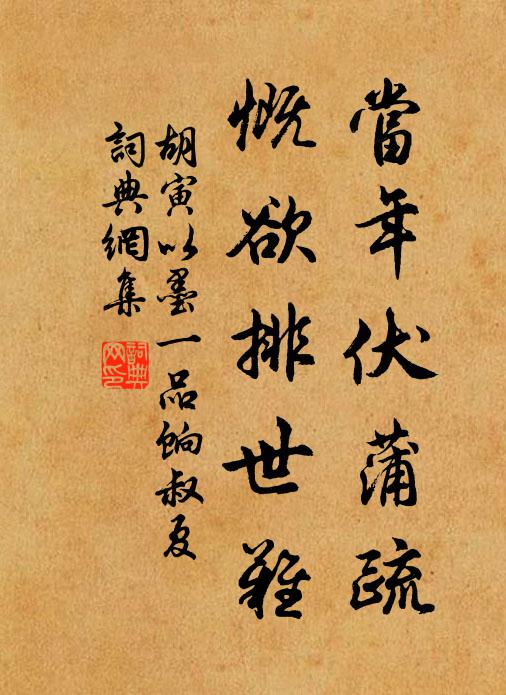 當年伏蒲疏
慨欲排世難
胡寅以墨一品餉叔夏
詞典網集
詞典網印